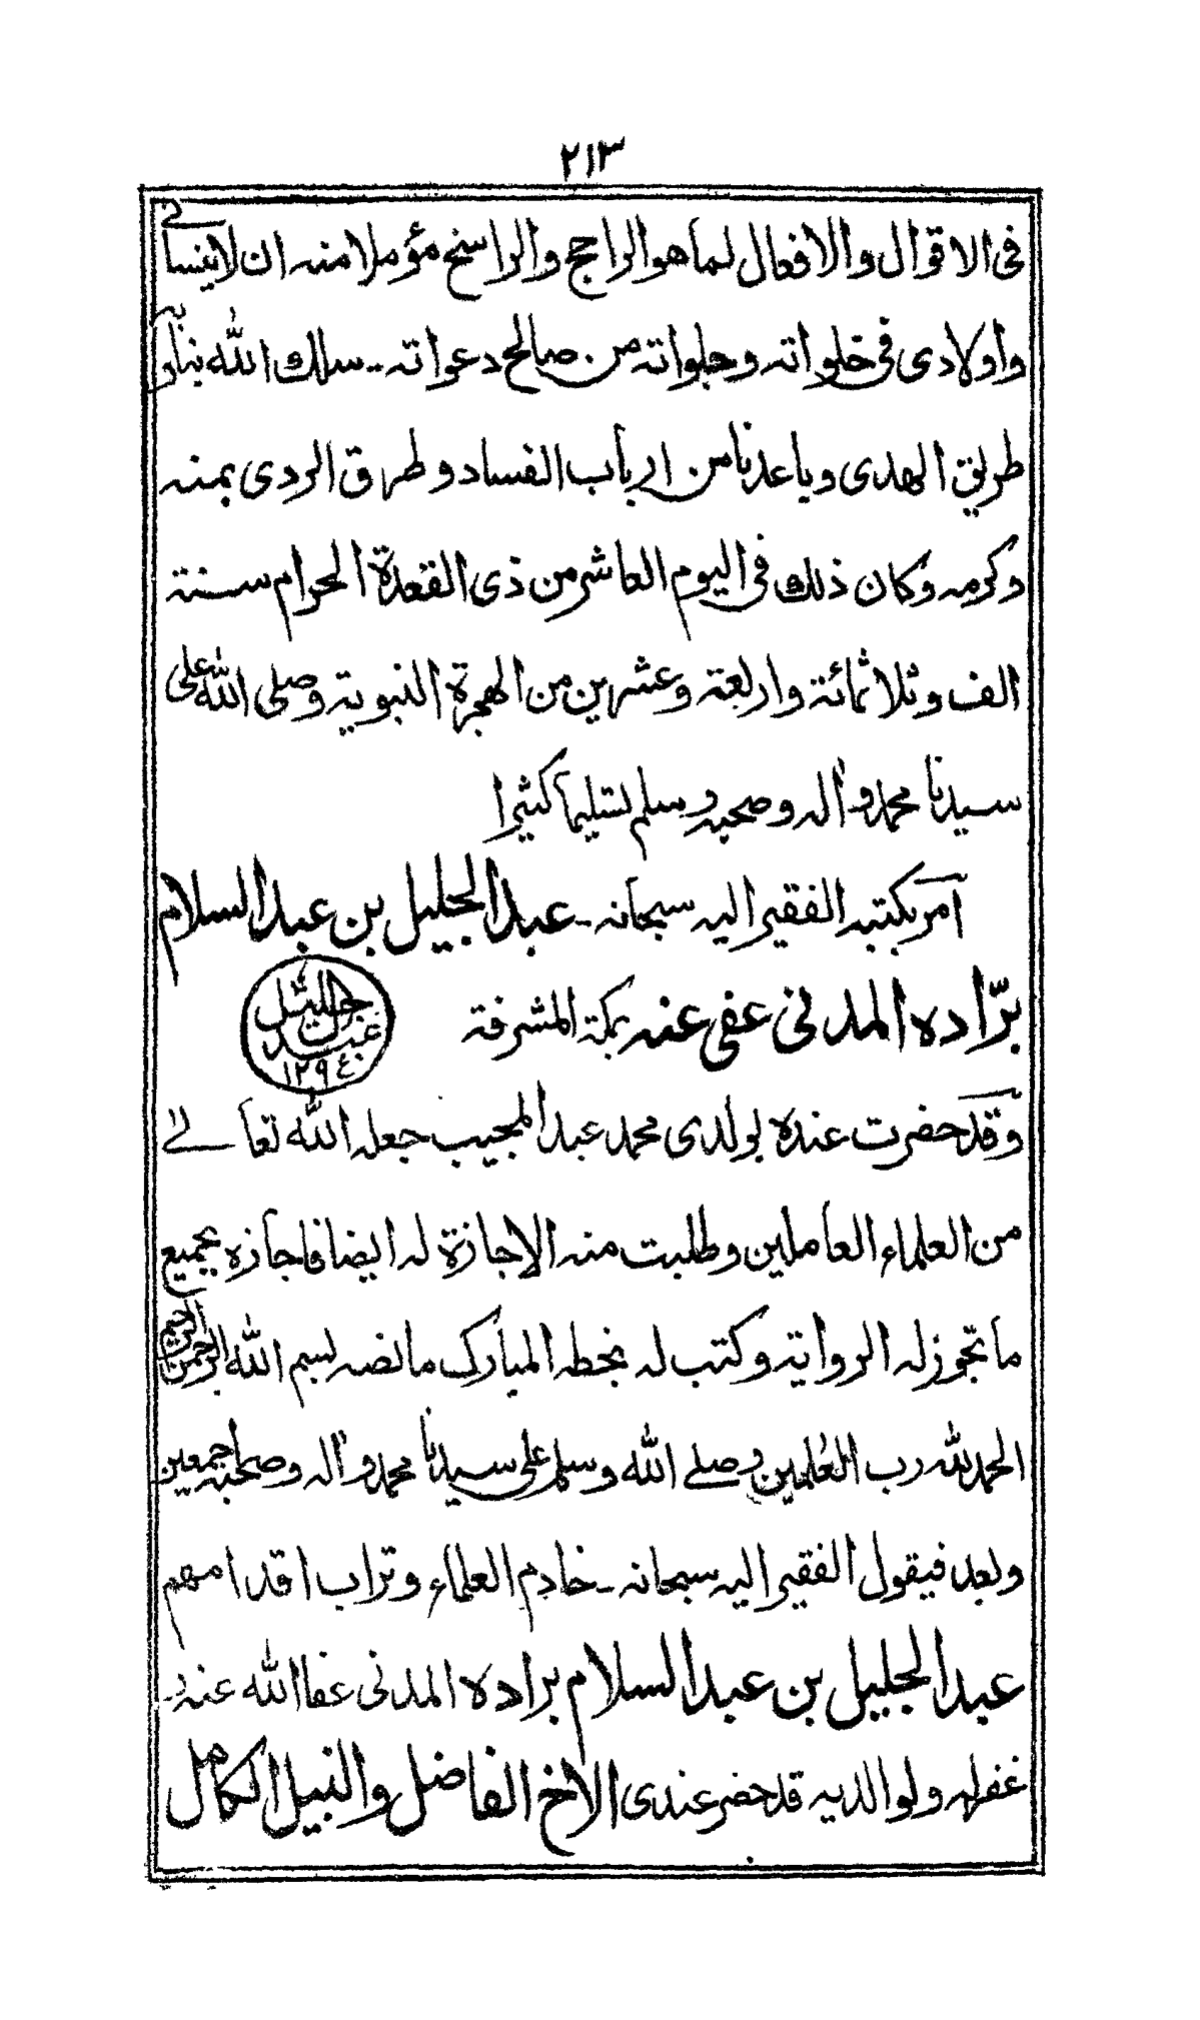 ٢١٣
فى الاقوال والافعال لما هو الراجح والراسخ مؤملا منه ان لا ينسانى
واولادى فى خلواته وجلواته من صالح دعواته۔ سلك الله بنا وبه
طريق الهدى وباعدنا من ارباب الفساد وطرق الردى بمنه
وكرمه وكان ذلك فى اليوم العاشر من ذى القعدة الحرام سنة
الف وثلاثمائة واربعة وعشرين من الهجرة النبوية وصلى الله على
سيدنا محمد وآله وصحبه وسلم تسليما كثيرا
آمر بكتبه الفقير اليه سبحانه۔ عبد الجليل بن عبد السلام
برّاده المدنى عفى عنه بمكة المشرفة
عبد الجليل ١٢٩٤
وقد حضرت عنده بولدى محمد عبد المجيب جعله الله تعالے
من العلماء العاملين وطلبت منه الاجازة له ايضا فاجازه بجميع
ما تجوز له الرواية وكتب له بخطه المبارك ما نصه بسم الله الرحمن الرحيم
الحمد لله رب العٰلمين وصلے الله وسلم على سيدنا محمد وآله وصحبه اجمعين
وبعد فيقول الفقير اليه سبحانه۔ خادم العلماء وتراب اقدامهم
عبد الجليل بن عبد السلام براده المدنى عفا الله عنه و۔
غفر له ولوالديه قد حضر عندى الاخ الفاضل والنبيل الكامل